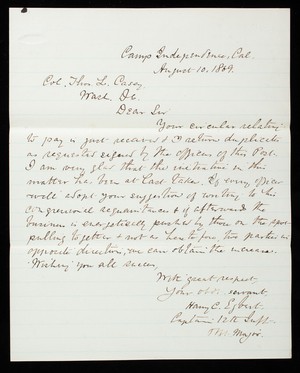 Camp Independence, Cal.
August 10, 1869.
Col. Thos. L. Casey.
Wash. D.C.
Dear Sir
Your circular relating
to pay is just received & I return duplicate
as requested signed by the officers of this Post.
I am very glad that the initiative in this
matter has been at last taken. If every officer
will adopt your suggestion of writing to his
congressional acquaintances & if afterward the
business is energetically pushed by those on the spot
pulling together & not as heretofore two parties in
opposite directions, we can obtain the increase.
Wishing you all success,
With great respect,
Your obt. servant
Harry C. Egbert.
Captain 12th Inft.
Major.